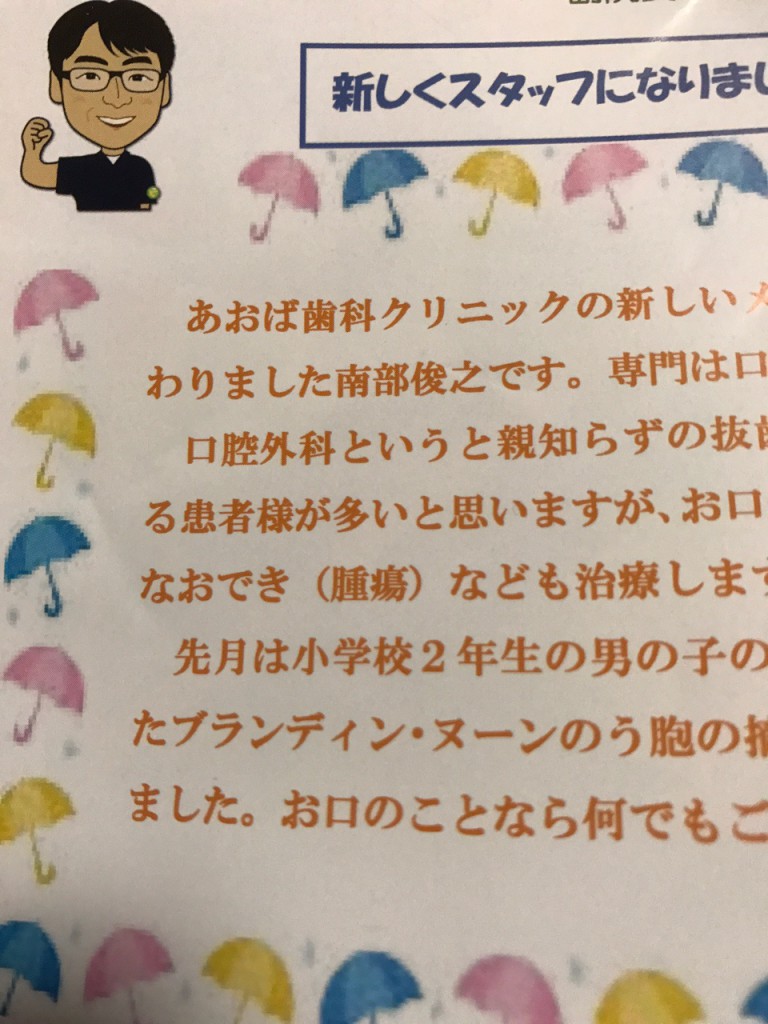 新しくスタッフになりまし
あおば歯科クリニックの新しいメ
わりました南部俊之です。専門は口
口腔外科というと親知らずの抜歯
る患者様が多いと思いますが、お口
なおでき（腫瘍）なども治療します
先月は小学校２年生の男の子の
たブランディン・ヌーンのう胞の摘
ました。お口のことなら何でもご